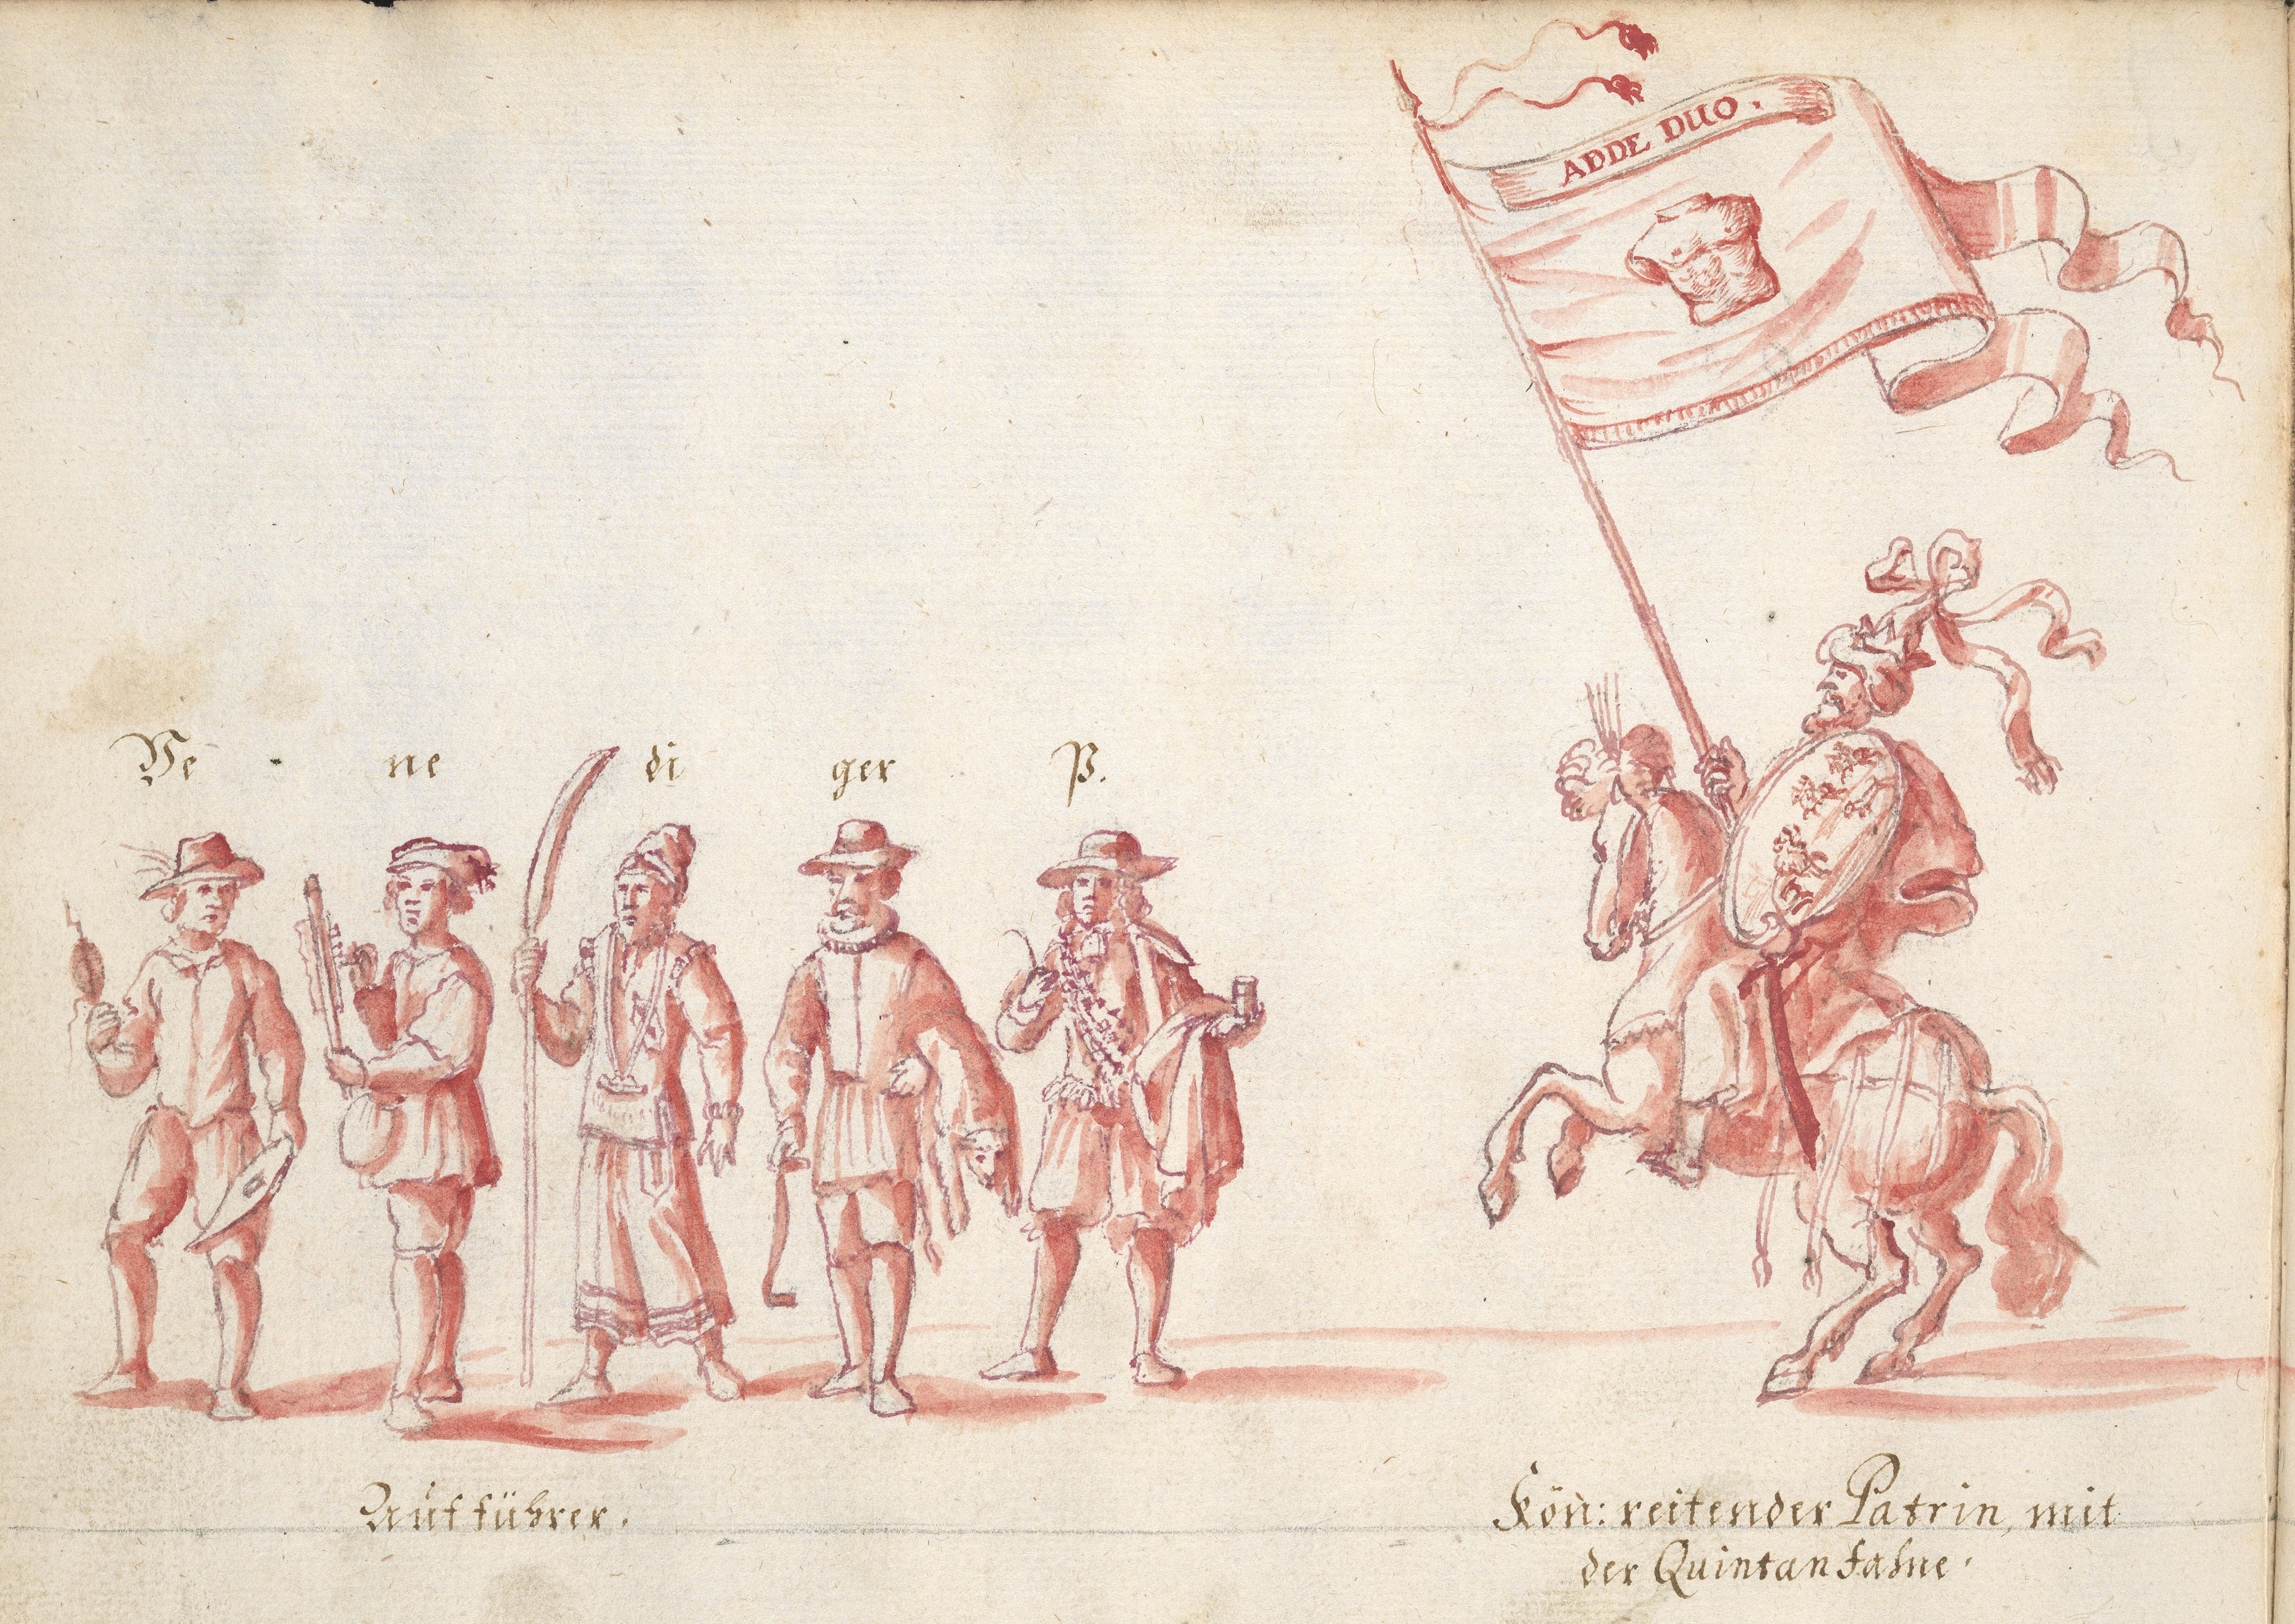 ADDE DUO.
Ve - ne di ger P.
Aufführer.
Kön: reitender Patrin, mit
der Quintanfahne.